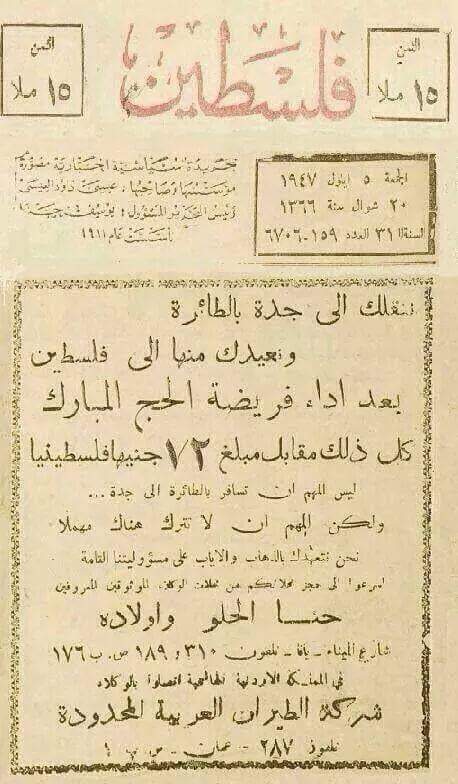 الثمن
١٥ ملا
فلسطين
الثمن
١٥ ملا
الجمعة ٥ ايلول ١٩٤٧
٢٠ شوال سنة ١٣٦٦
السنة ٣١ العدد ١٥٩-٦٧٠٦
جريدة سياسية اخبارية مصورة
مؤسسها وصاحبها : عيسى داود العيسى
رئيس التحرير المسؤول : يوسف حنا
تأسست عام ١٩١١
ننقلك الى جدة بالطائرة
ونعيدك منها الى فلسطين
بعد اداء فريضة الحج المبارك
كل ذلك مقابل مبلغ ٧٢ جنيها فلسطينيا
ليس المهم ان تسافر بالطائرة الى جدة ...
ولكن المهم ان لا تترك هناك مهملا
نحن نتعهدك بالذهاب والاياب على مسؤوليتنا التامة
اسرعوا الى حجز محلاتكم من محلات الوكلاء الموثوقين المعروفين
حنا الحلو واولاده
شارع الميناء - يافا - تلفون ٣١٠ و ١٨٩ ص.ب ١٧٦
في المملكة الاردنية الهاشمية اتصلوا بالوكلاء
شركة الطيران العربية المحدودة
تلفون ٢٨٧ - عمان - ص ب